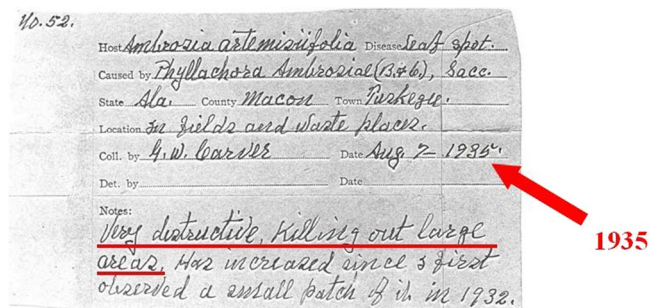 No. 52.
Host Ambrosia artemisiifolia Disease Leaf spot.
Caused by Phyllachora Ambrosiae (B.&C.), Sacc.
State Ala. County Macon Town Tuskegee.
Location In fields and waste places.
Coll. by G. W. Carver Date Aug. 7- 1935.
Det. by Date
1935
Notes:
Very destructive, Killing out large
areas, Has increased since I first
observed a small patch of it in 1932.